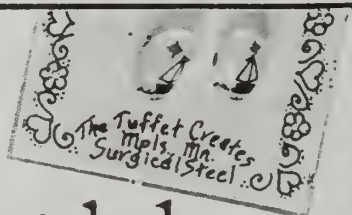 The Tuffet Creates
Mpls. Mn.
Surgical Steel